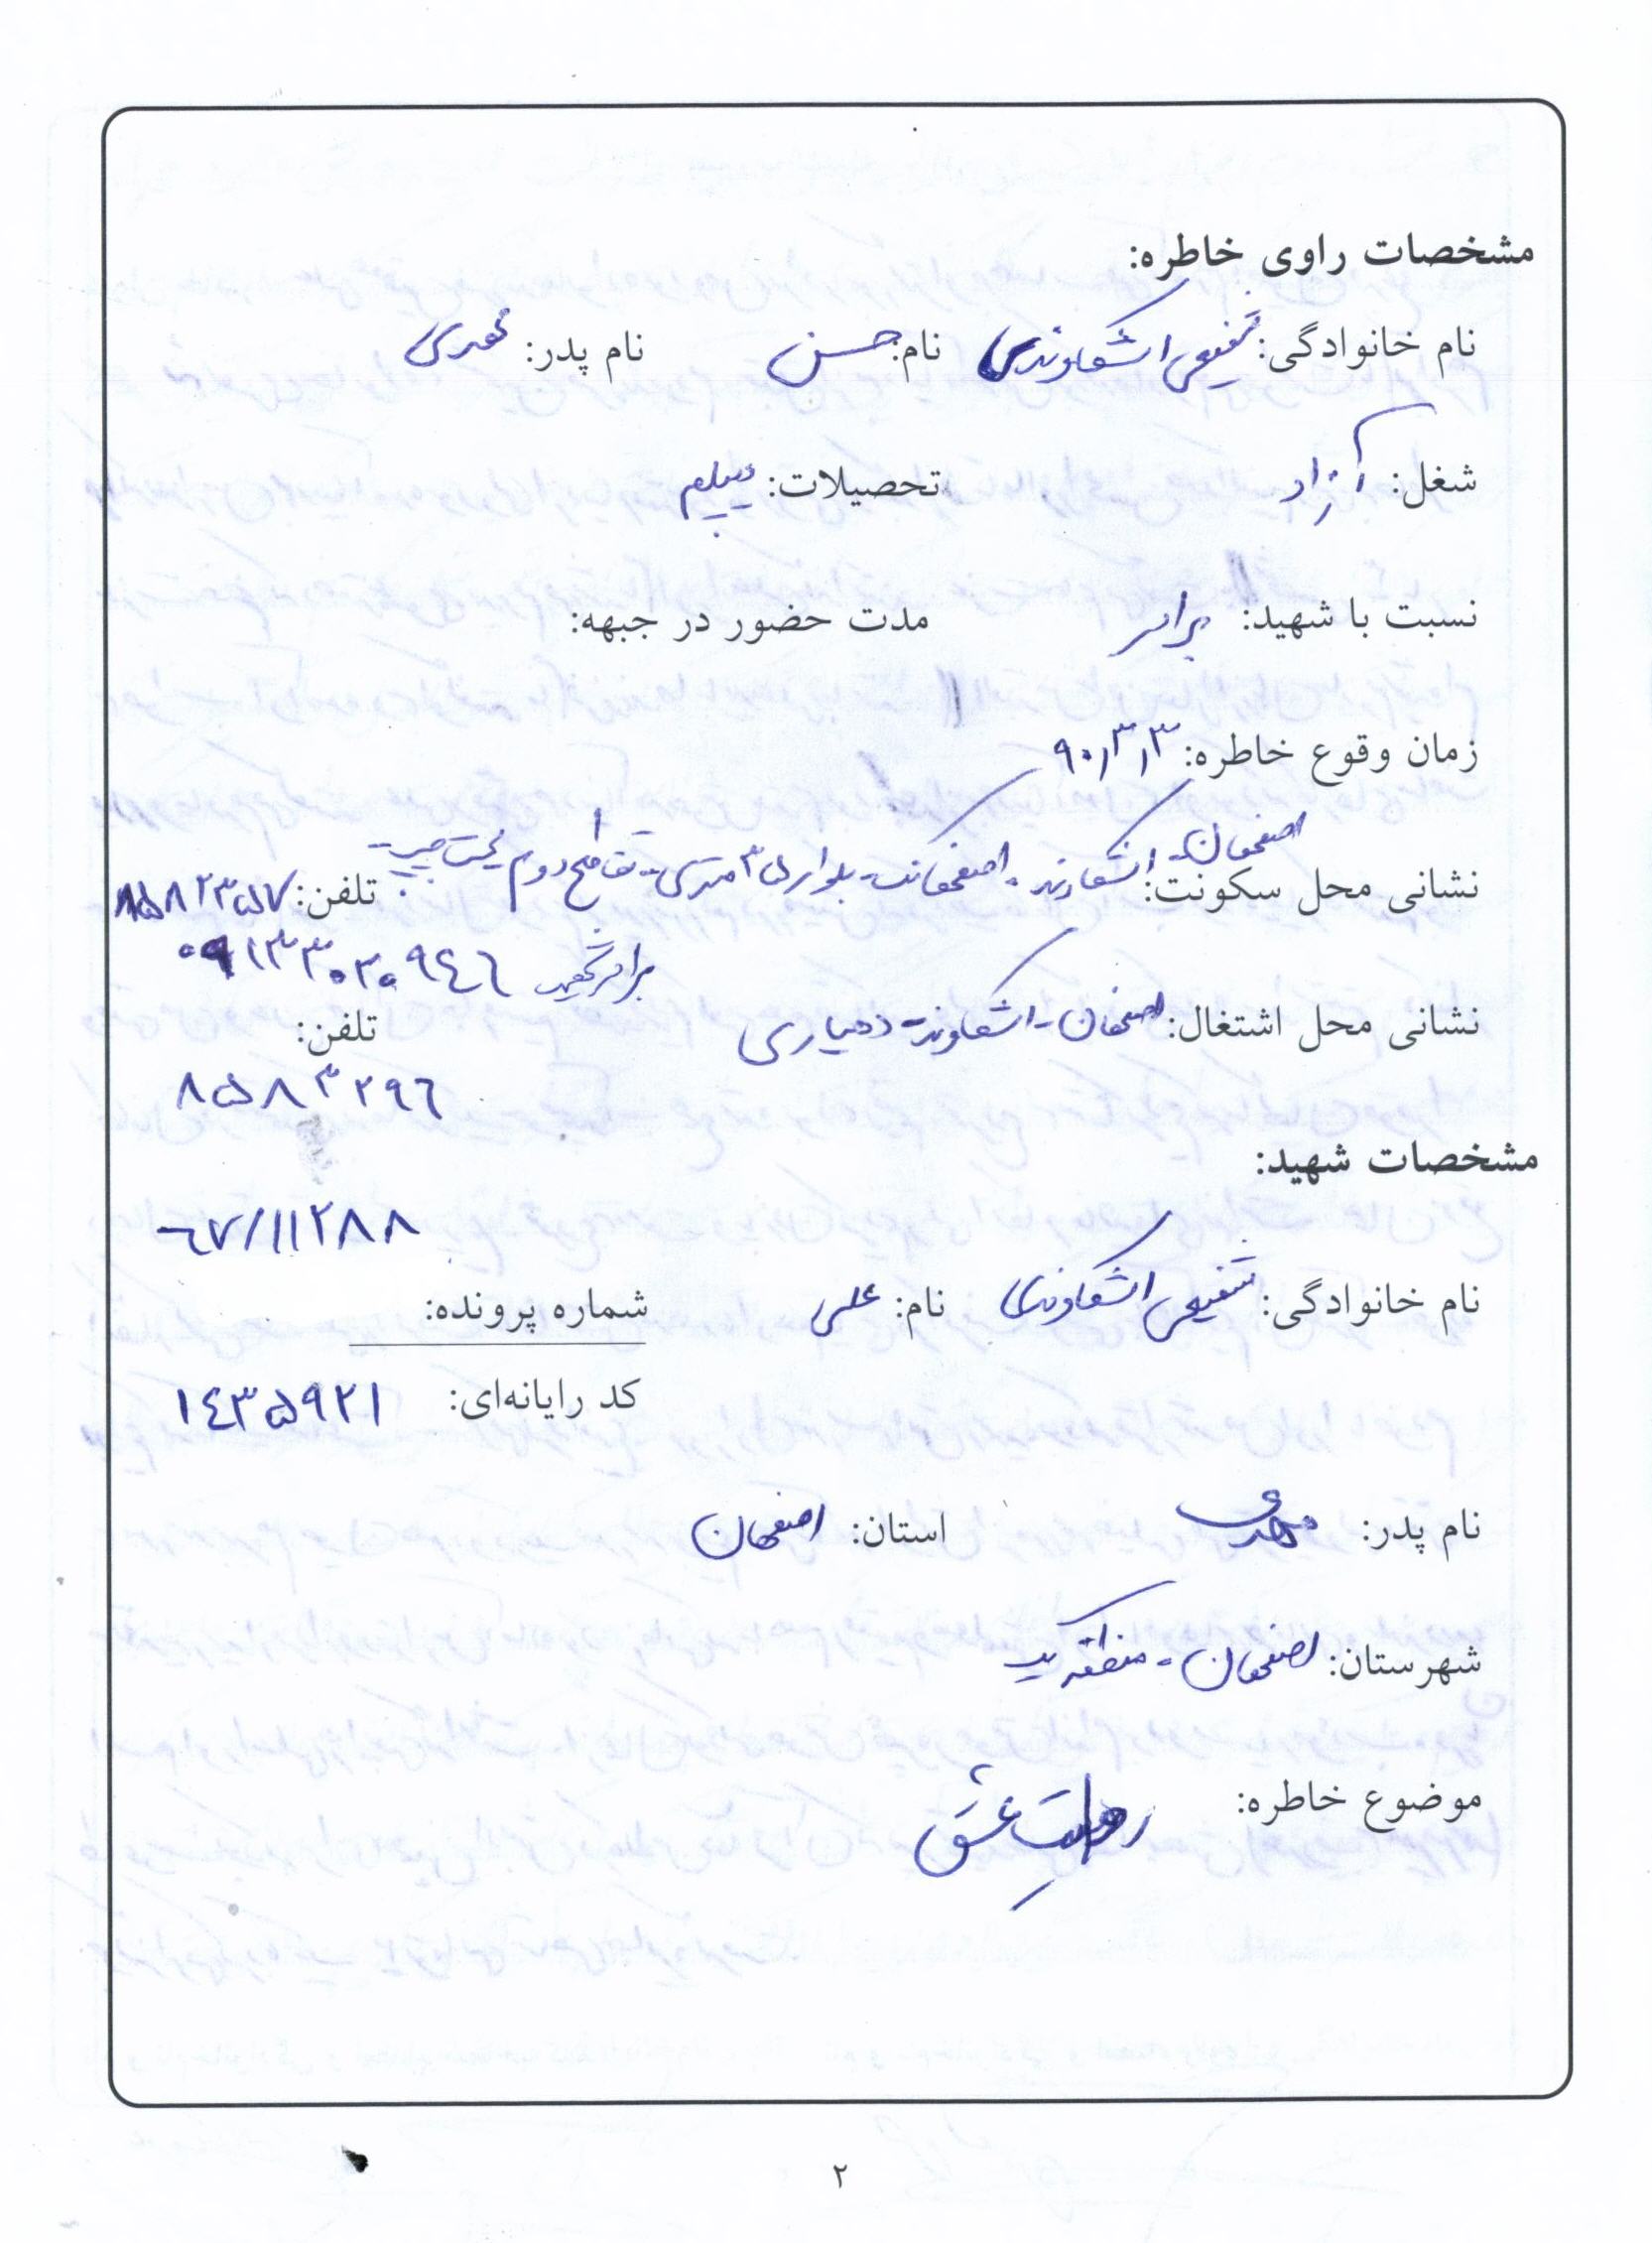 مشخصات راوی خاطره:
نام خانوادگی: شفیعی اشکاوندی نام: حسن نام پدر: مهدی
شغل: آزاد تحصیلات: دیپلم
نسبت با شهید: برادر مدت حضور در جبهه:
زمان وقوع خاطره: ۹۰/۳/۳
اصفهان -
نشانی محل سکونت: اشکاوند - اصفهانک - بلوار ۳۵ متری - تقاطع دوم سمت چپ - تلفن: ۸۵۸۲۳۵۷
برادر شهید ۰۹۱۳۳۰۲۰۹۴۶
نشانی محل اشتغال: اصفهان - اشکاوند - دهیاری تلفن:
۸۵۸۳۲۹۶
مشخصات شهید:
۶۷/۱۱۲۸۸
نام خانوادگی: شفیعی اشکاوندی نام: علی شماره پرونده:
کد رایانه‌ای: ۱۴۳۵۹۲۱
نام پدر: مهدی استان: اصفهان
شهرستان: اصفهان - منطقه یک
موضوع خاطره: روایت عشق
۲